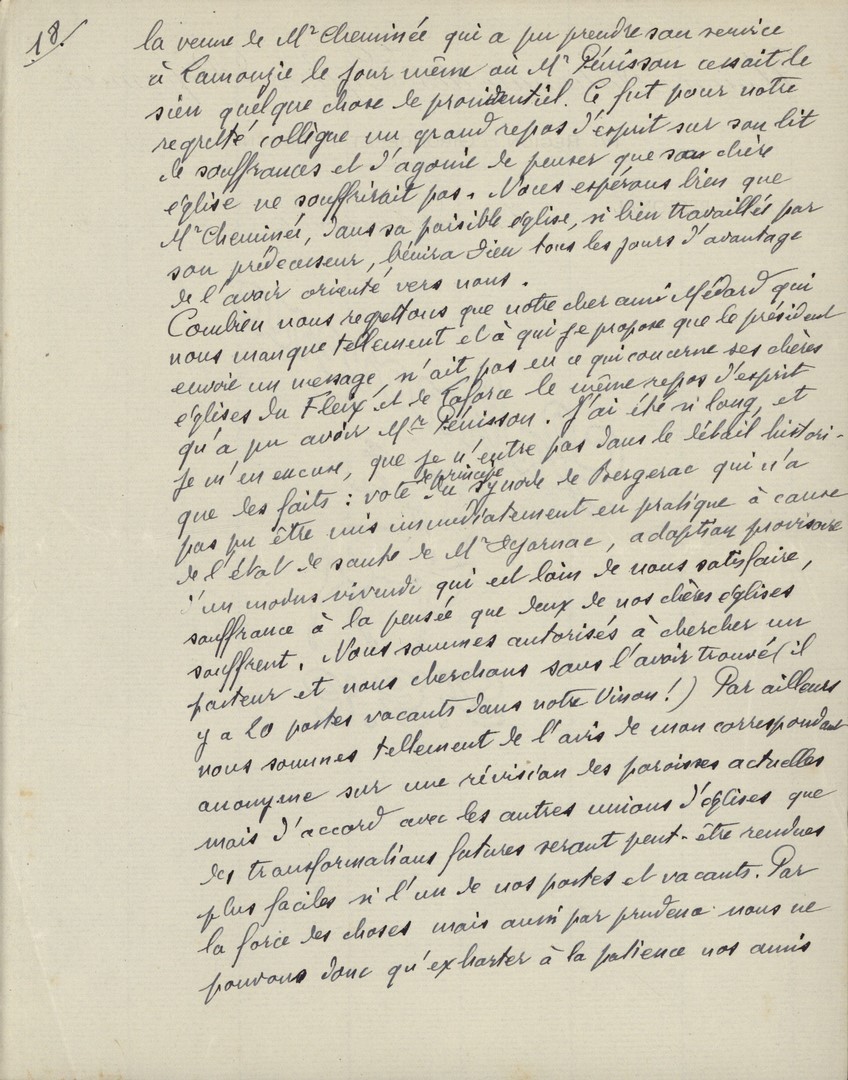 18/
la venue de Mr Cheminée qui a pu prendre son service
à Lamonzie le jour même où Mr Pénisson cessait le
sien quelque chose de providentiel. Ce fut pour notre
regretté collègue un grand repos d'esprit sur son lit
de souffrances et d'agonie de penser que son chère
église ne souffrirait pas. Nous espérons bien que
Mr Cheminée, dans sa paisible église, si bien travaillée par
son prédécesseur, bénira Dieu tous les jours d'avantage
de l'avoir orienté vers nous.
Combien nous regrettons que notre cher ami Médard qui
nous manque tellement et à qui je propose que le président
envoie un message, n'ait pas en ce qui concerne ses chères
églises du Fleix et de Laforce le même repos d'esprit
qu'a pu avoir Mr Pénisson. J'ai été si long, et
je m'en excuse, que je n'entre pas dans le détail histori-
que des faits : vote de principe du synode de Bergerac qui n'a
pas pu être mis immédiatement en pratique à cause
de l'état de santé de Mr Dejarnac, adaption provisoire
d'un modus vivendi qui est loin de nous satisfaire,
souffrance à la pensée que deux de nos chères églises
souffrent. Nous sommes autorisés à chercher un
pasteur et nous cherchons sans l'avoir trouvé (il
y a 20 postes vacants dans notre Union !) Par ailleurs
nous sommes tellement de l'avis de mon correspondant
anonyme sur une révision des paroisses actuelles
mais d'accord avec les autres unions d'églises que
des transformations futures seront peut-être rendues
plus faciles si l'un de nos postes et vacants. Par
la force des choses mais aussi par prudence nous ne
pouvons donc qu'exhorter à la patience nos amis